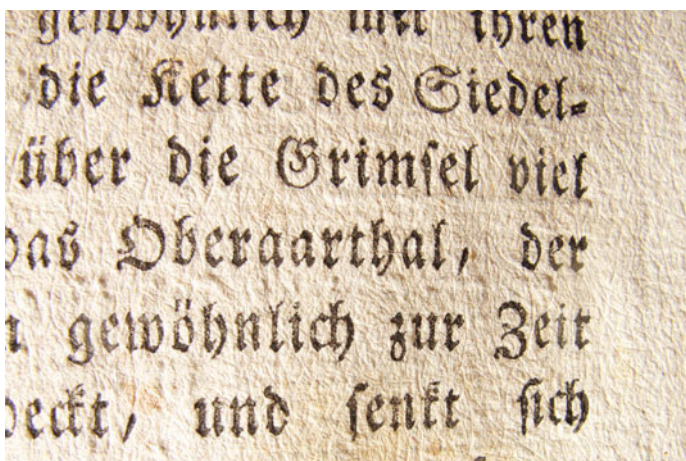 gewöhnlich mit ihren
die Kette des Siedel-
über die Grimſel viel
das Oberaarthal, der
gewöhnlich zur Zeit
deckt, und ſenkt ſich